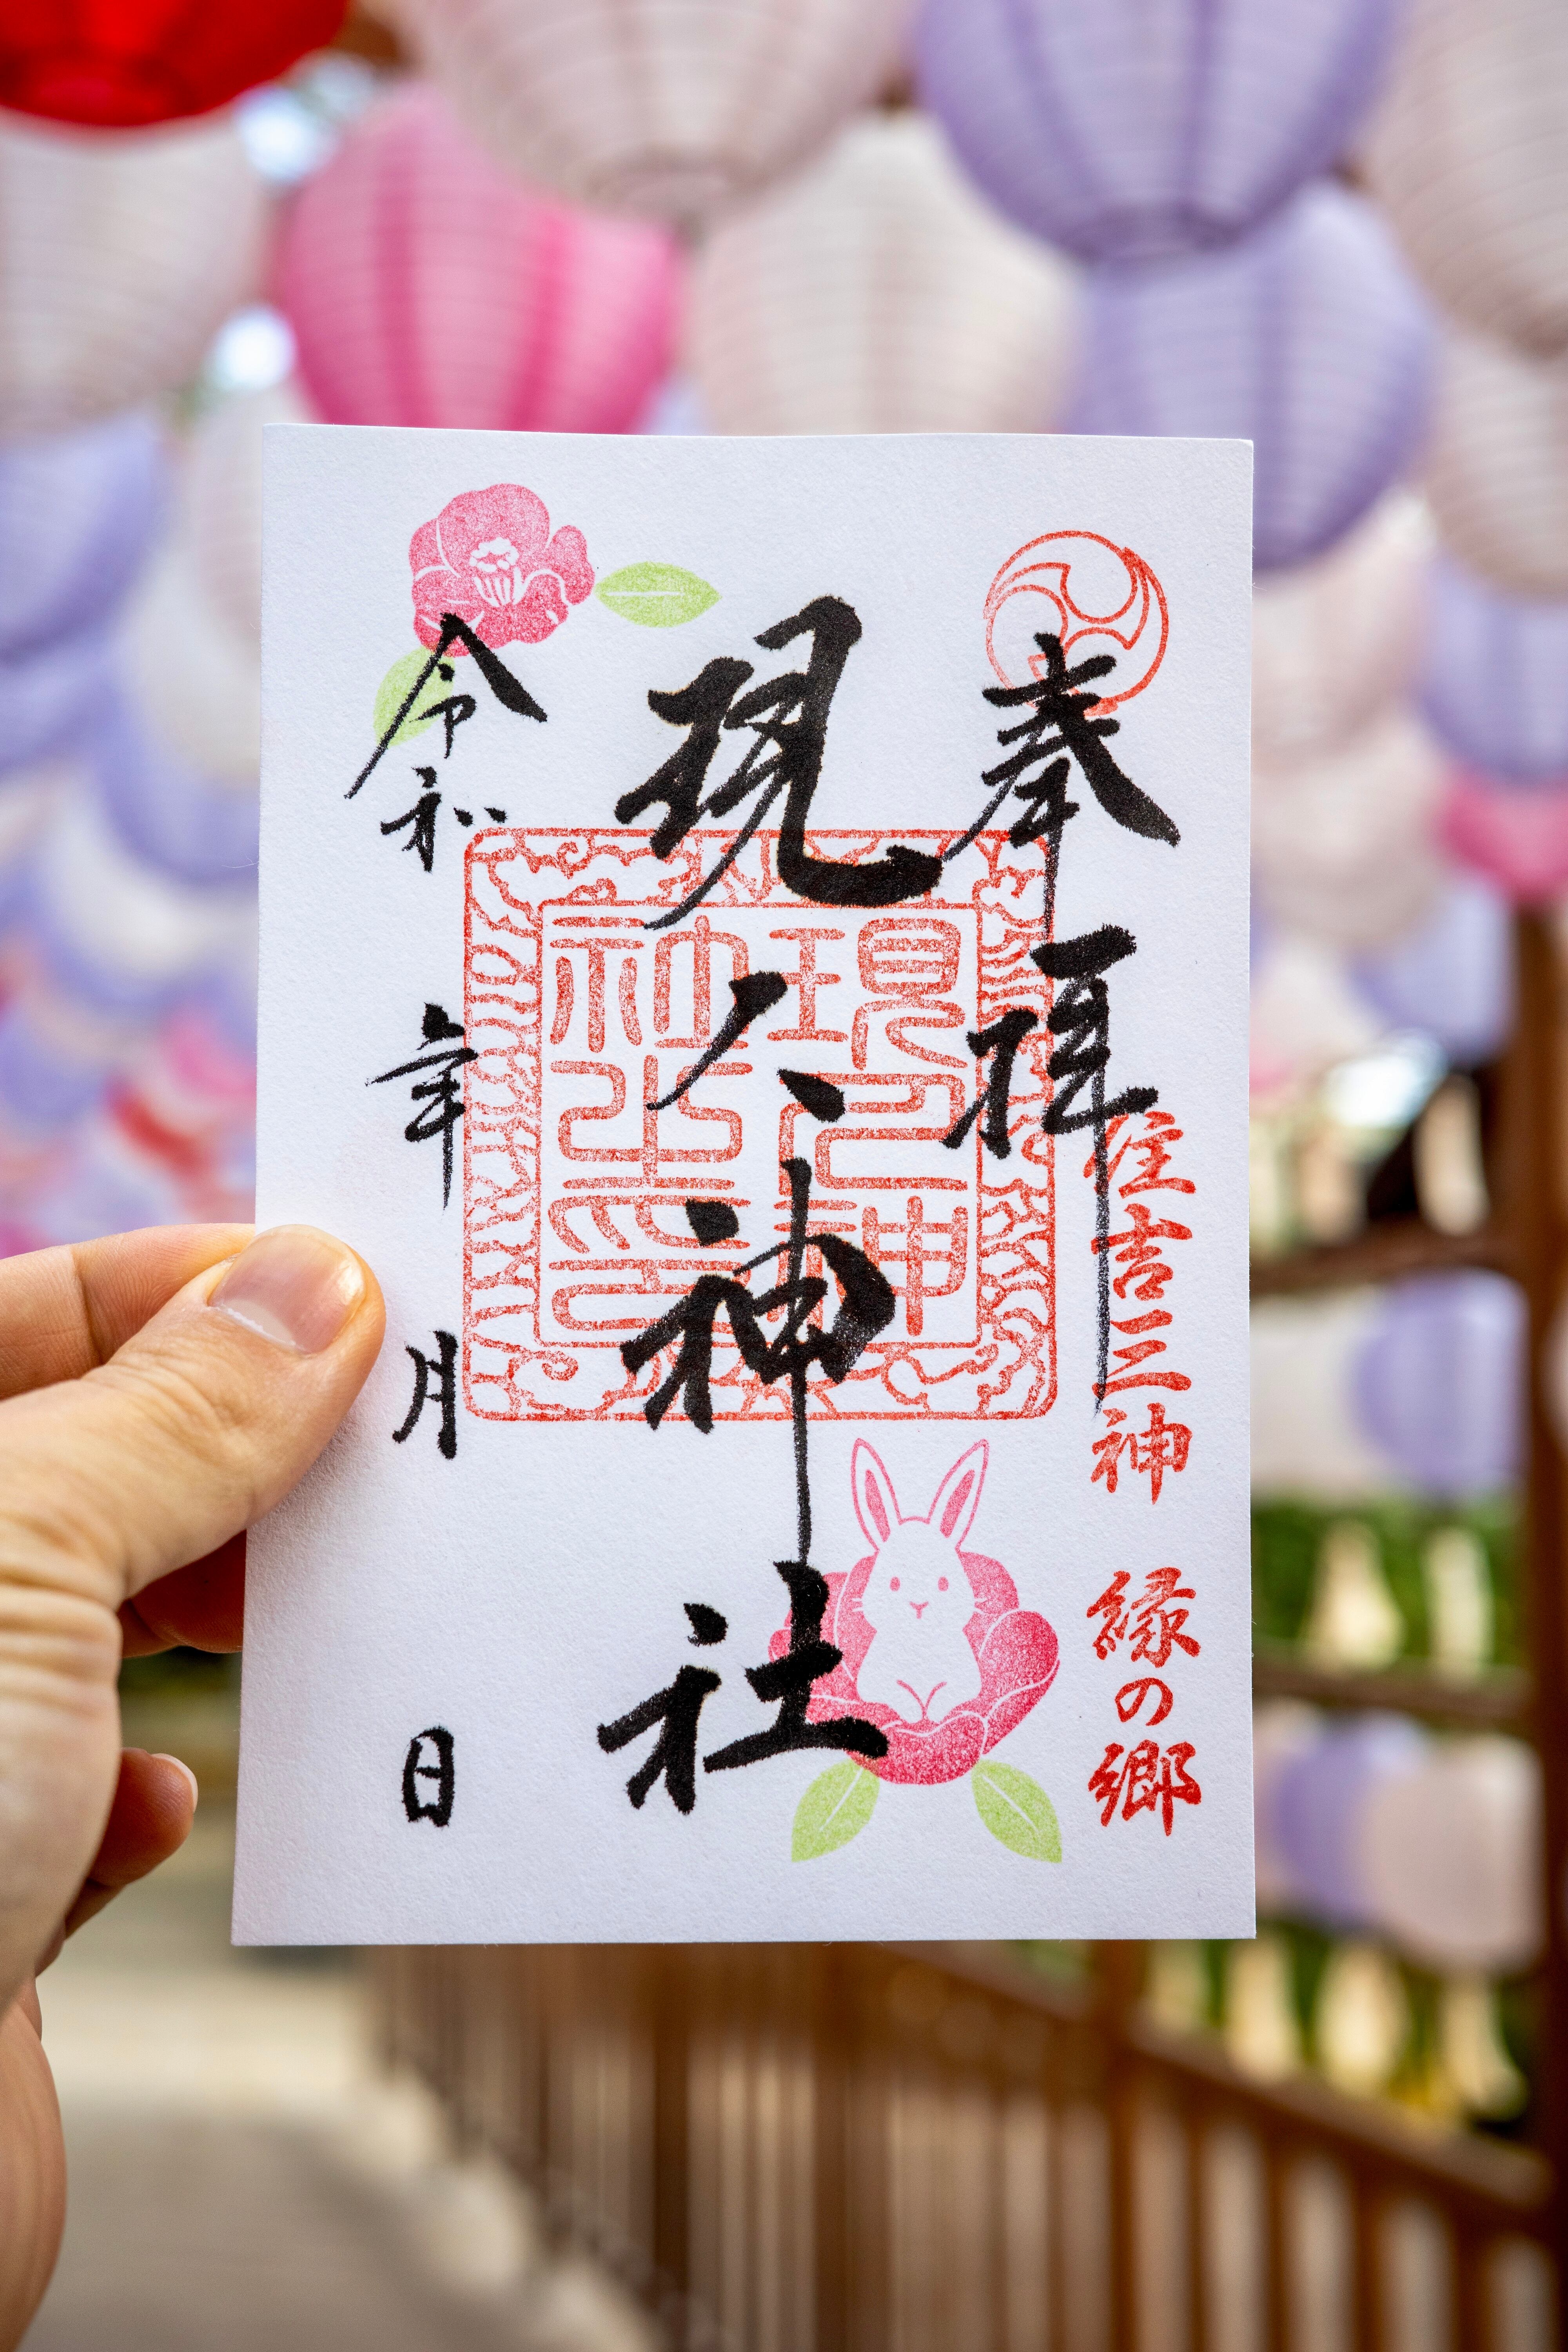 奉拝
住吉三神 縁の郷
現人神社
令和 年 月 日